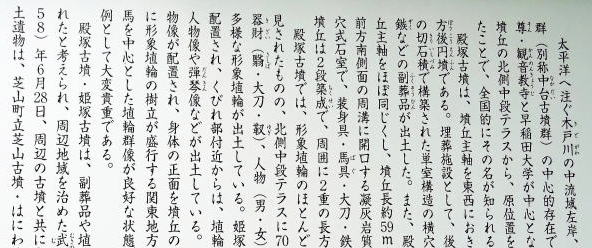 太平洋へ注ぐ木戸川の中流域左岸、
群（別称中台古墳群）の中心的存在で
尊・観音教寺と早稲田大学が中心とな
墳丘の北側中段テラスから、原位置
たことで、全国的にその名が知られる
殿塚古墳は、墳丘主軸を東西におき
方後円墳である。埋葬施設として、後
の切石積で構築された単室構造の横穴
鏃などの副葬品が出土した。また、殿
丘主軸をほぼ同じくし、墳丘長約59m
前方南側面の周溝に開口する凝灰岩質
穴式石室で、装身具・馬具・大刀・鉄
墳丘は2段築成で、周囲に2重の長方
殿塚古墳では、形象埴輪のほとんど
見されたものの、北側中段テラスに70
器財（翳、大刀・靫）人物（男・女）
多様な形象埴輪が出土している。姫塚
配置され、くびれ部付近からは、埴輪
人物像や弾琴像などが出土している。
物像が配置され、身体の正面を墳丘の
に形象埴輪の樹立が盛行する関東地方
馬を中心とした埴輪群像が良好な状態
例として大変貴重である。
殿塚古墳、姫塚古墳は、副葬品や埴
れたと考えられ、周辺地域を治めた武
58）年6月28日、周辺の古墳と共に
土遺物は、芝山町立芝山古墳・はにわ